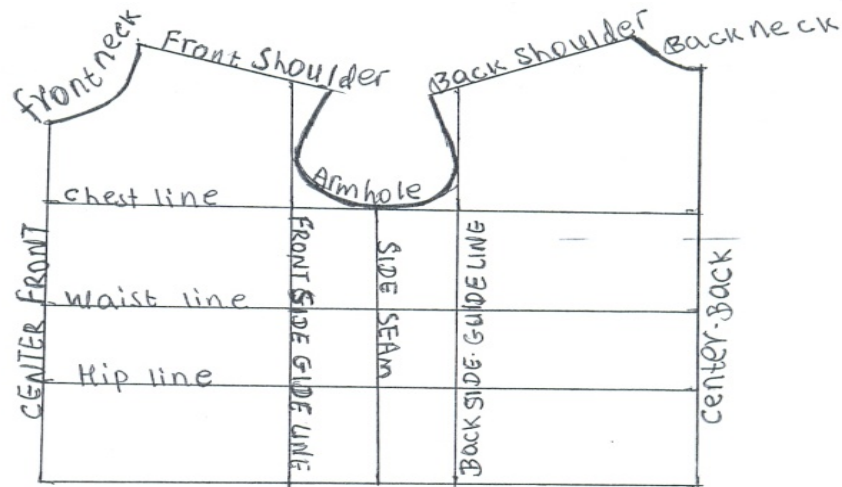 front neck
Front Shoulder
Back Shoulder
Back neck
Armhole
Chest line
Waist line
Hip line
CENTER FRONT
FRONT SIDE GIDE LINE
SIDE SEAM
BACK SIDE GUIDELINE
Center-Back